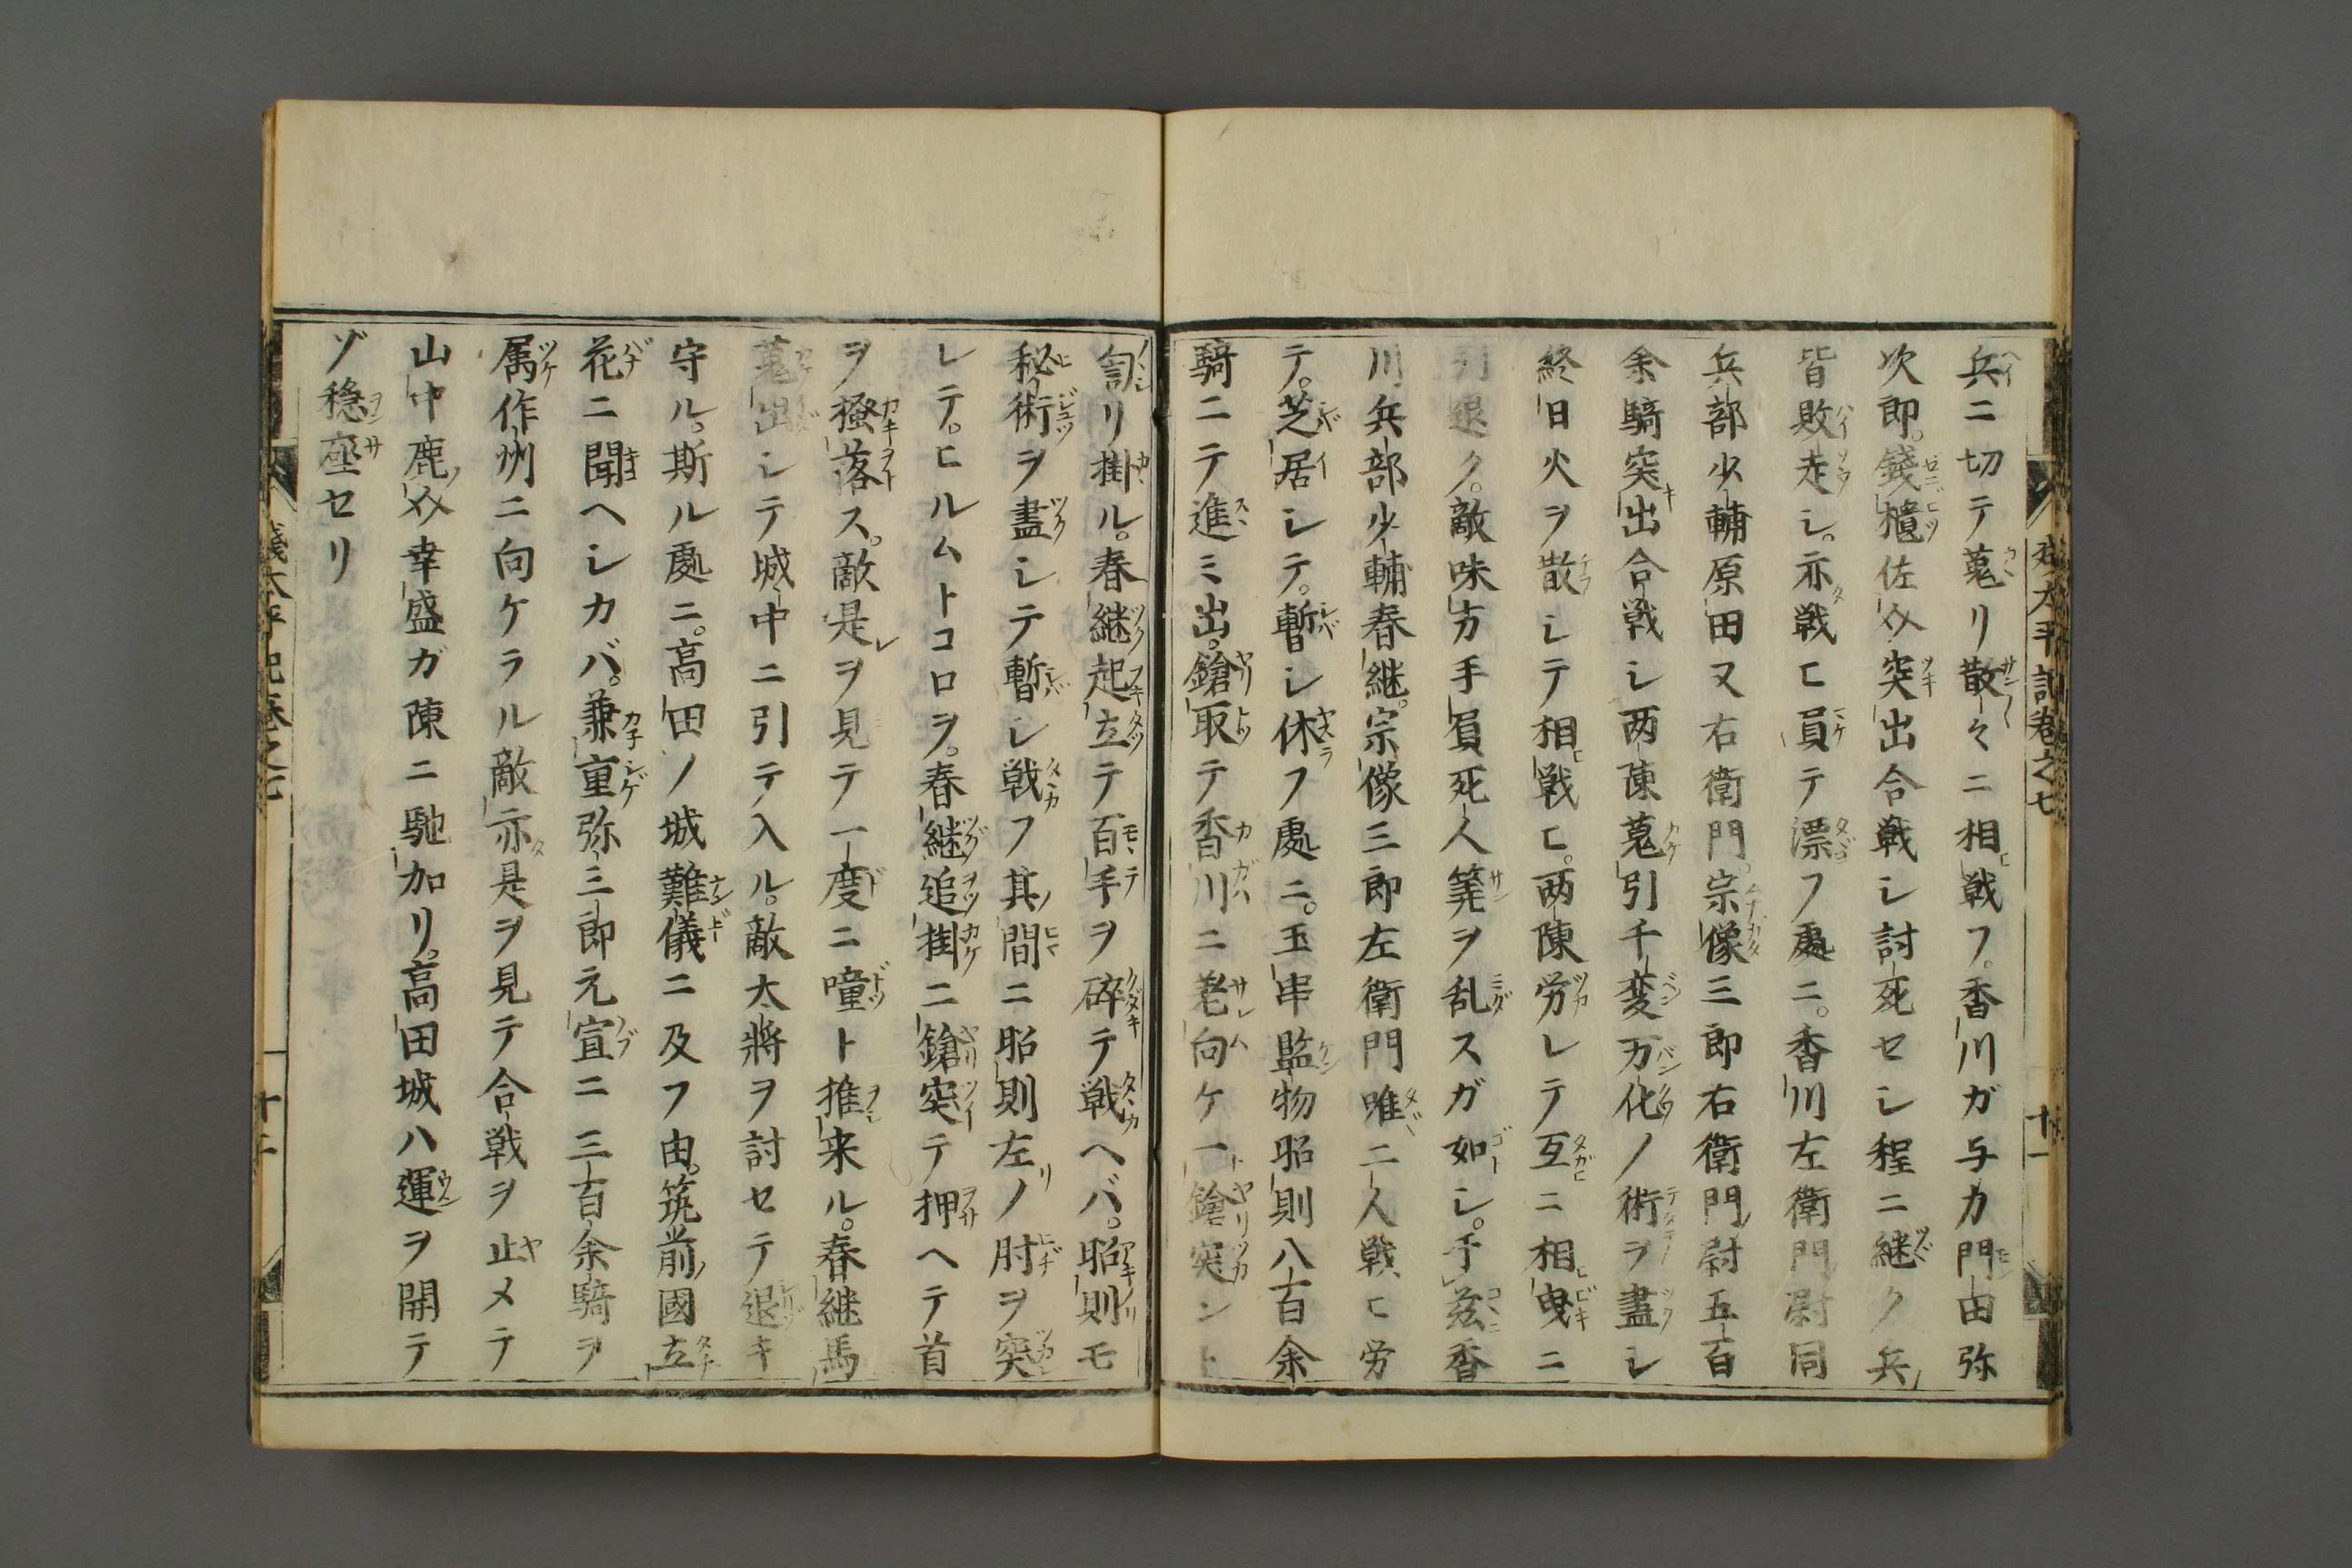 兵ニ切テ蒐リ散々ニ相戦フ。香川ガ与力門田弥
次郎。錢櫃佐〆突出合戦シ討死セシ程ニ継ク兵
皆敗走シ。亦戦ヒ負テ漂フ處ニ。香川左衛門尉同
兵部少輔原田又右衛門。宗像三郎右衛門尉五百
余騎突出合戦シ両陳蒐引千変万化ノ術ヲ盡シ
終日火ヲ散シテ相戦ヒ。両陳労レテ互ニ相曳ニ
引退ク。敵味方手負死人筭ヲ乱スガ如シ。于茲香
川兵部少輔春継。宗像三郎左衛門唯二人戦ヒ労
テ。芝居シテ。暫シ休フ處ニ。玉串監物昭則八百余
騎ニテ進ミ出。鎗取テ香川ニ差向ケ一鎗突ント
訇リ掛ル。春継起立テ百手ヲ碎テ戦ヘバ。昭則モ
秘術ヲ盡シテ暫シ戦フ其間ニ昭則左ノ肘ヲ突
レテ。ヒルムトコロヲ。春継追掛ニ鎗突テ押ヘテ首
ヲ掻落ス。敵是ヲ見テ一度ニ噇ト推来ル。春継馬
蒐出シテ城中ニ引テ入ル。敵大將ヲ討セテ退キ
守ル。斯ル處ニ。高田ノ城難儀ニ及フ由。筑前國立
花ニ聞ヘシカバ。兼重弥三郎元宣ニ三百余騎ヲ
属作州ニ向ケラル敵亦是ヲ見テ合戦ヲ止メテ
山中鹿〆幸盛ガ陳ニ馳加リ。高田城ハ運ヲ開テ
ゾ穏座セリ